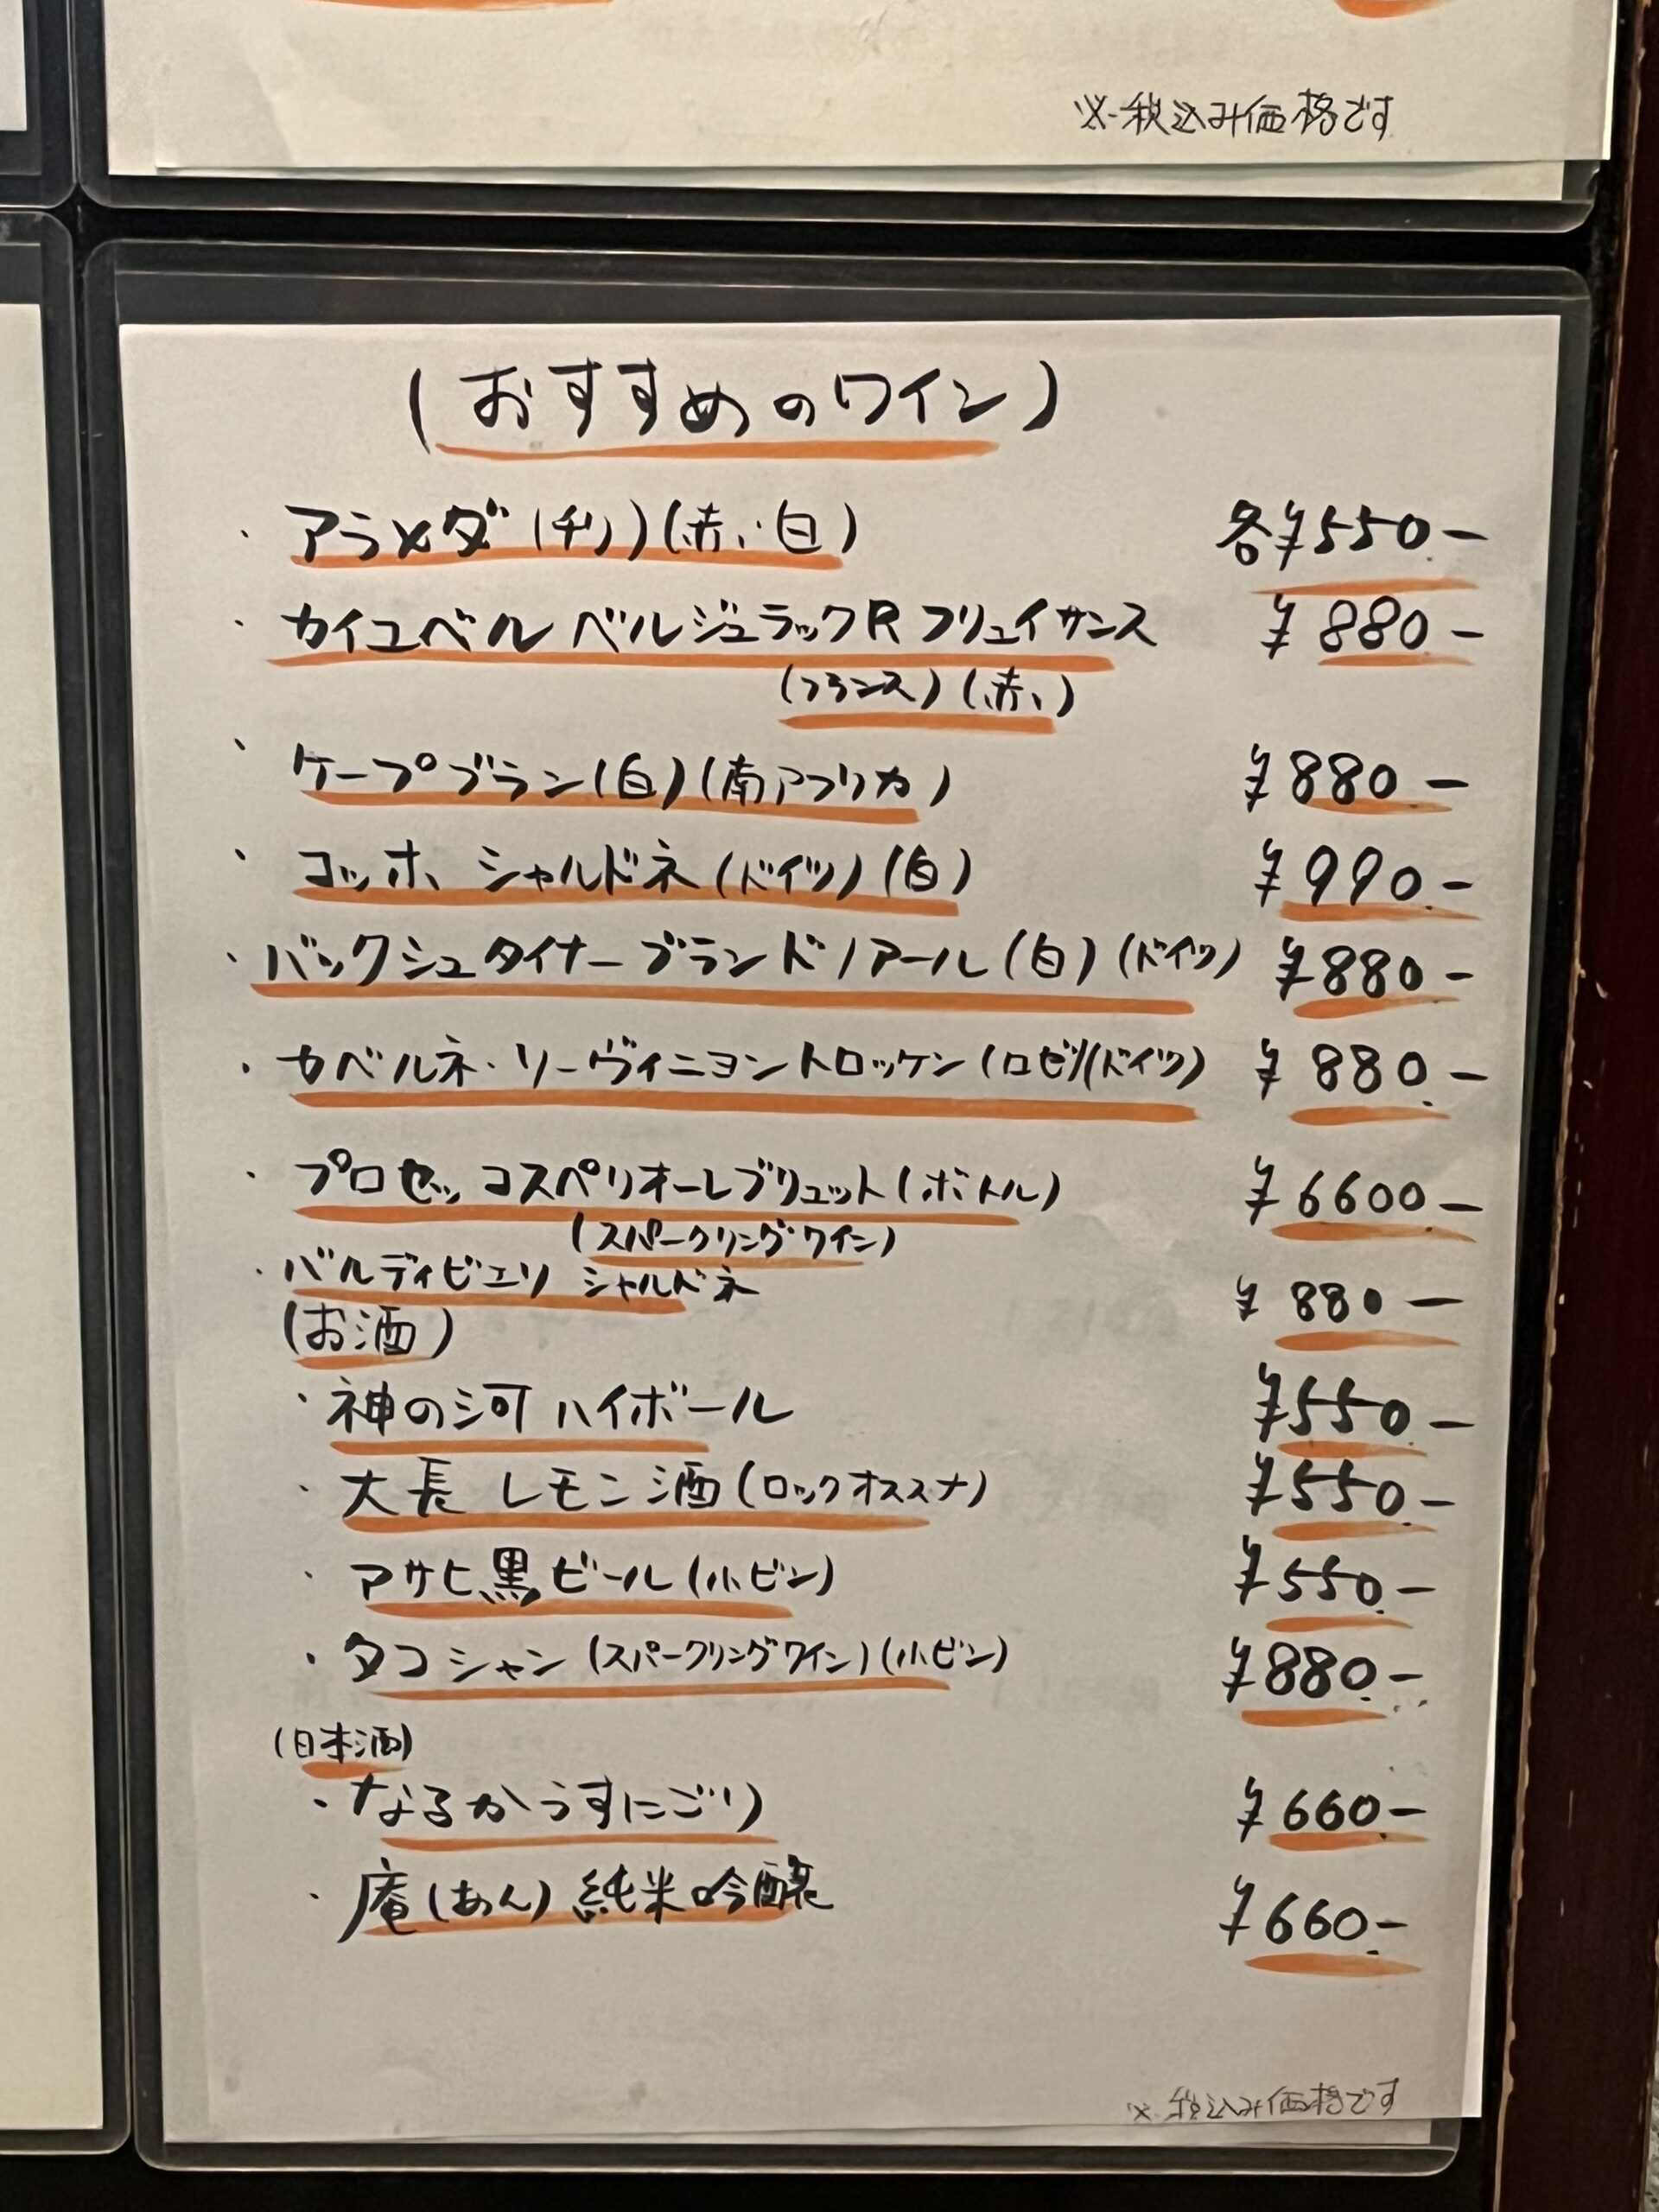 ※税込み価格です
(おすすめのワイン)
・アラメダ(チリ)(赤・白) 各¥550-
・カイユベル ベルジュラックR フリュイサンス ¥880-
(フランス)(赤)
・ケープブラン(白)(南アフリカ) ¥880-
・コッホ シャルドネ(ドイツ)(白) ¥990-
・バックシュタイナーブランドノアール(白)(ドイツ) ¥880-
・カベルネ・ソーヴィニヨントロッケン(ロゼ)(ドイツ) ¥880-
・プロセッコスペリオーレブリュット(ボトル) ¥6600-
(スパークリングワイン)
・バルディビエソ シャルドネ ¥880-
(お酒)
・神の河ハイボール ¥550-
・大長レモン酒(ロックオススメ) ¥550-
・アサヒ黒ビール(小ビン) ¥550-
・タコシャン(スパークリングワイン)(小ビン) ¥880-
(日本酒)
・なるかうすにごり ¥660-
・庵(あん)純米吟醸 ¥660-
※税込み価格です